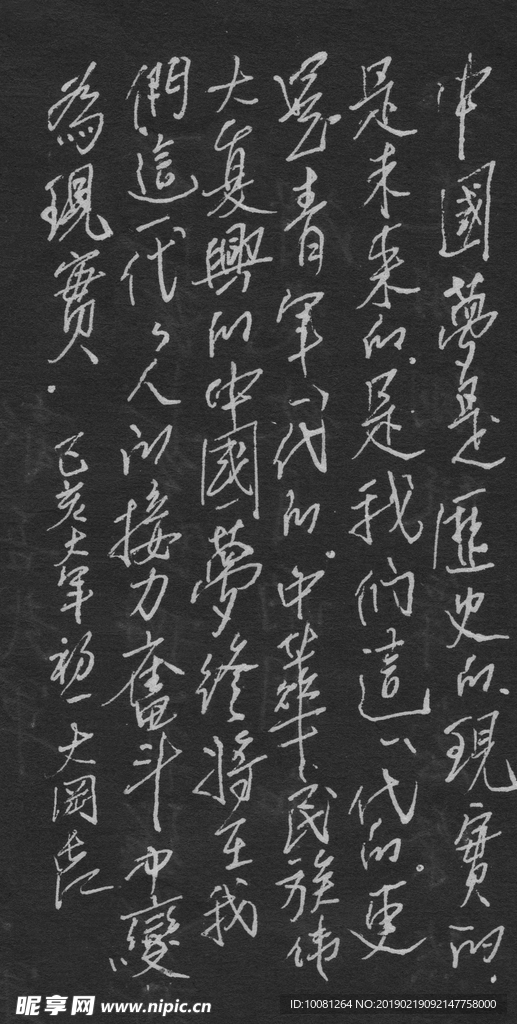 中國夢是歷史的,現實的,
是未來的,是我们這一代的。更
是青年一代的。中華民族伟
大复興的中國夢終將在我
們這一代々人的接力奮斗中變
為現實.
己亥大年初一大岡
昵享网 www.nipic.cn
ID:10081264 NO:20190219092147758000